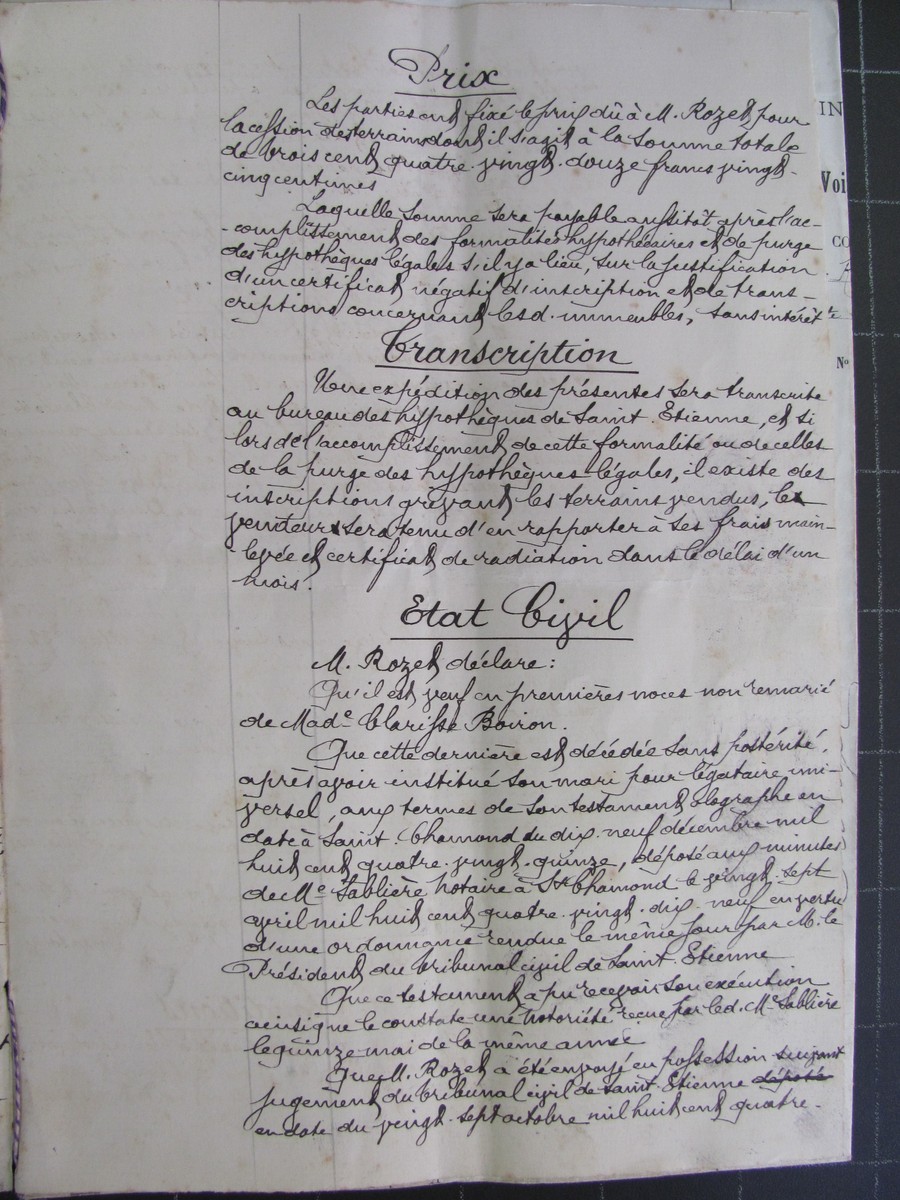 Prix
Les parties ont fixé le prix dû à M. Rozet, pour
la cession des terrains dont il s'agit à la somme totale
de trois cent quatre-vingt-douze francs vingt-
cinq centimes
Laquelle somme sera payable aussitôt après l'ac-
-complissement des formalités hypothécaires et de purge
des hypothèques légales s'il y a lieu, sur la justification
d'un certificat négatif d'inscription et de trans-
criptions concernant lesd. immeubles, sans intérêt
Transcription
Une expédition des présentes sera transcrite
au bureau des hypothèques de Saint-Etienne, et si
lors de l'accomplissement de cette formalité ou de celles
de la purge des hypothèques légales, il existe des
inscriptions grevant les terrains vendus, le
venteur sera tenu d'en rapporter à ses frais main-
-levée et certificat de radiation dans le délai d'un
mois.
Etat Civil
M. Rozet déclare:
Qu'il est veuf en premières noces non remarié
de Made Clarisse Boiron.
Que cette dernière est décédée sans postérité,
après avoir institué son mari pour légataire uni-
versel, aux termes de son testament olographe en
date à Saint-Chamond du dix-neuf décembre mil
huit cent quatre-vingt-quinze, déposé aux minutes
de Me Sablière notaire à St Chamond le vingt-sept
avril mil huit cent quatre-vingt-dix-neuf en vertu
d'une ordonnance rendue le même jour par M. le
Président du tribunal civil de Saint-Etienne
Que ce testament a pu recevoir son exécution
ainsi que le constate une notoriété reçue par led. Me Sablière
le quinze mai de la même année
Que M. Rozet a été envoyé en possession suivant
jugement du tribunal civil de Saint-Etienne déposé
en date du vingt-sept octobre mil huit cent quatre-
IN
Voi
CO
No